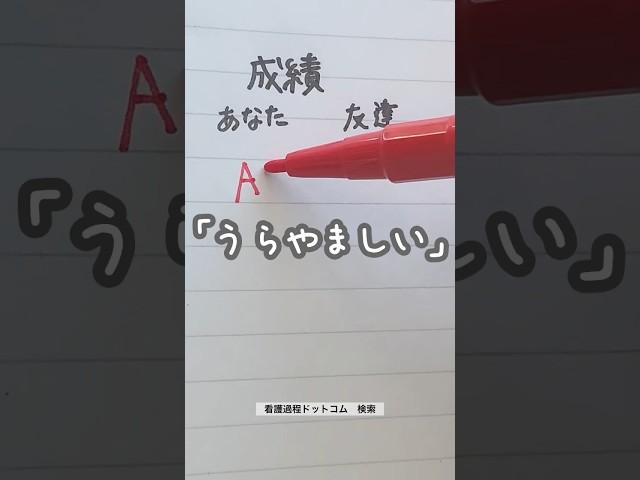 成績
あなた 友達
A
「うらやましい」
看護過程ドットコム 検索